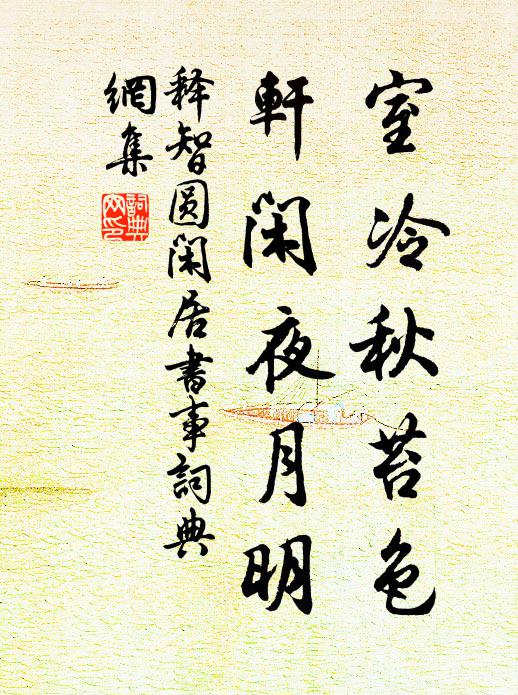 室冷秋苔色
軒閑夜月明
释智圆閑居書事詞典
網集
詞典
网印